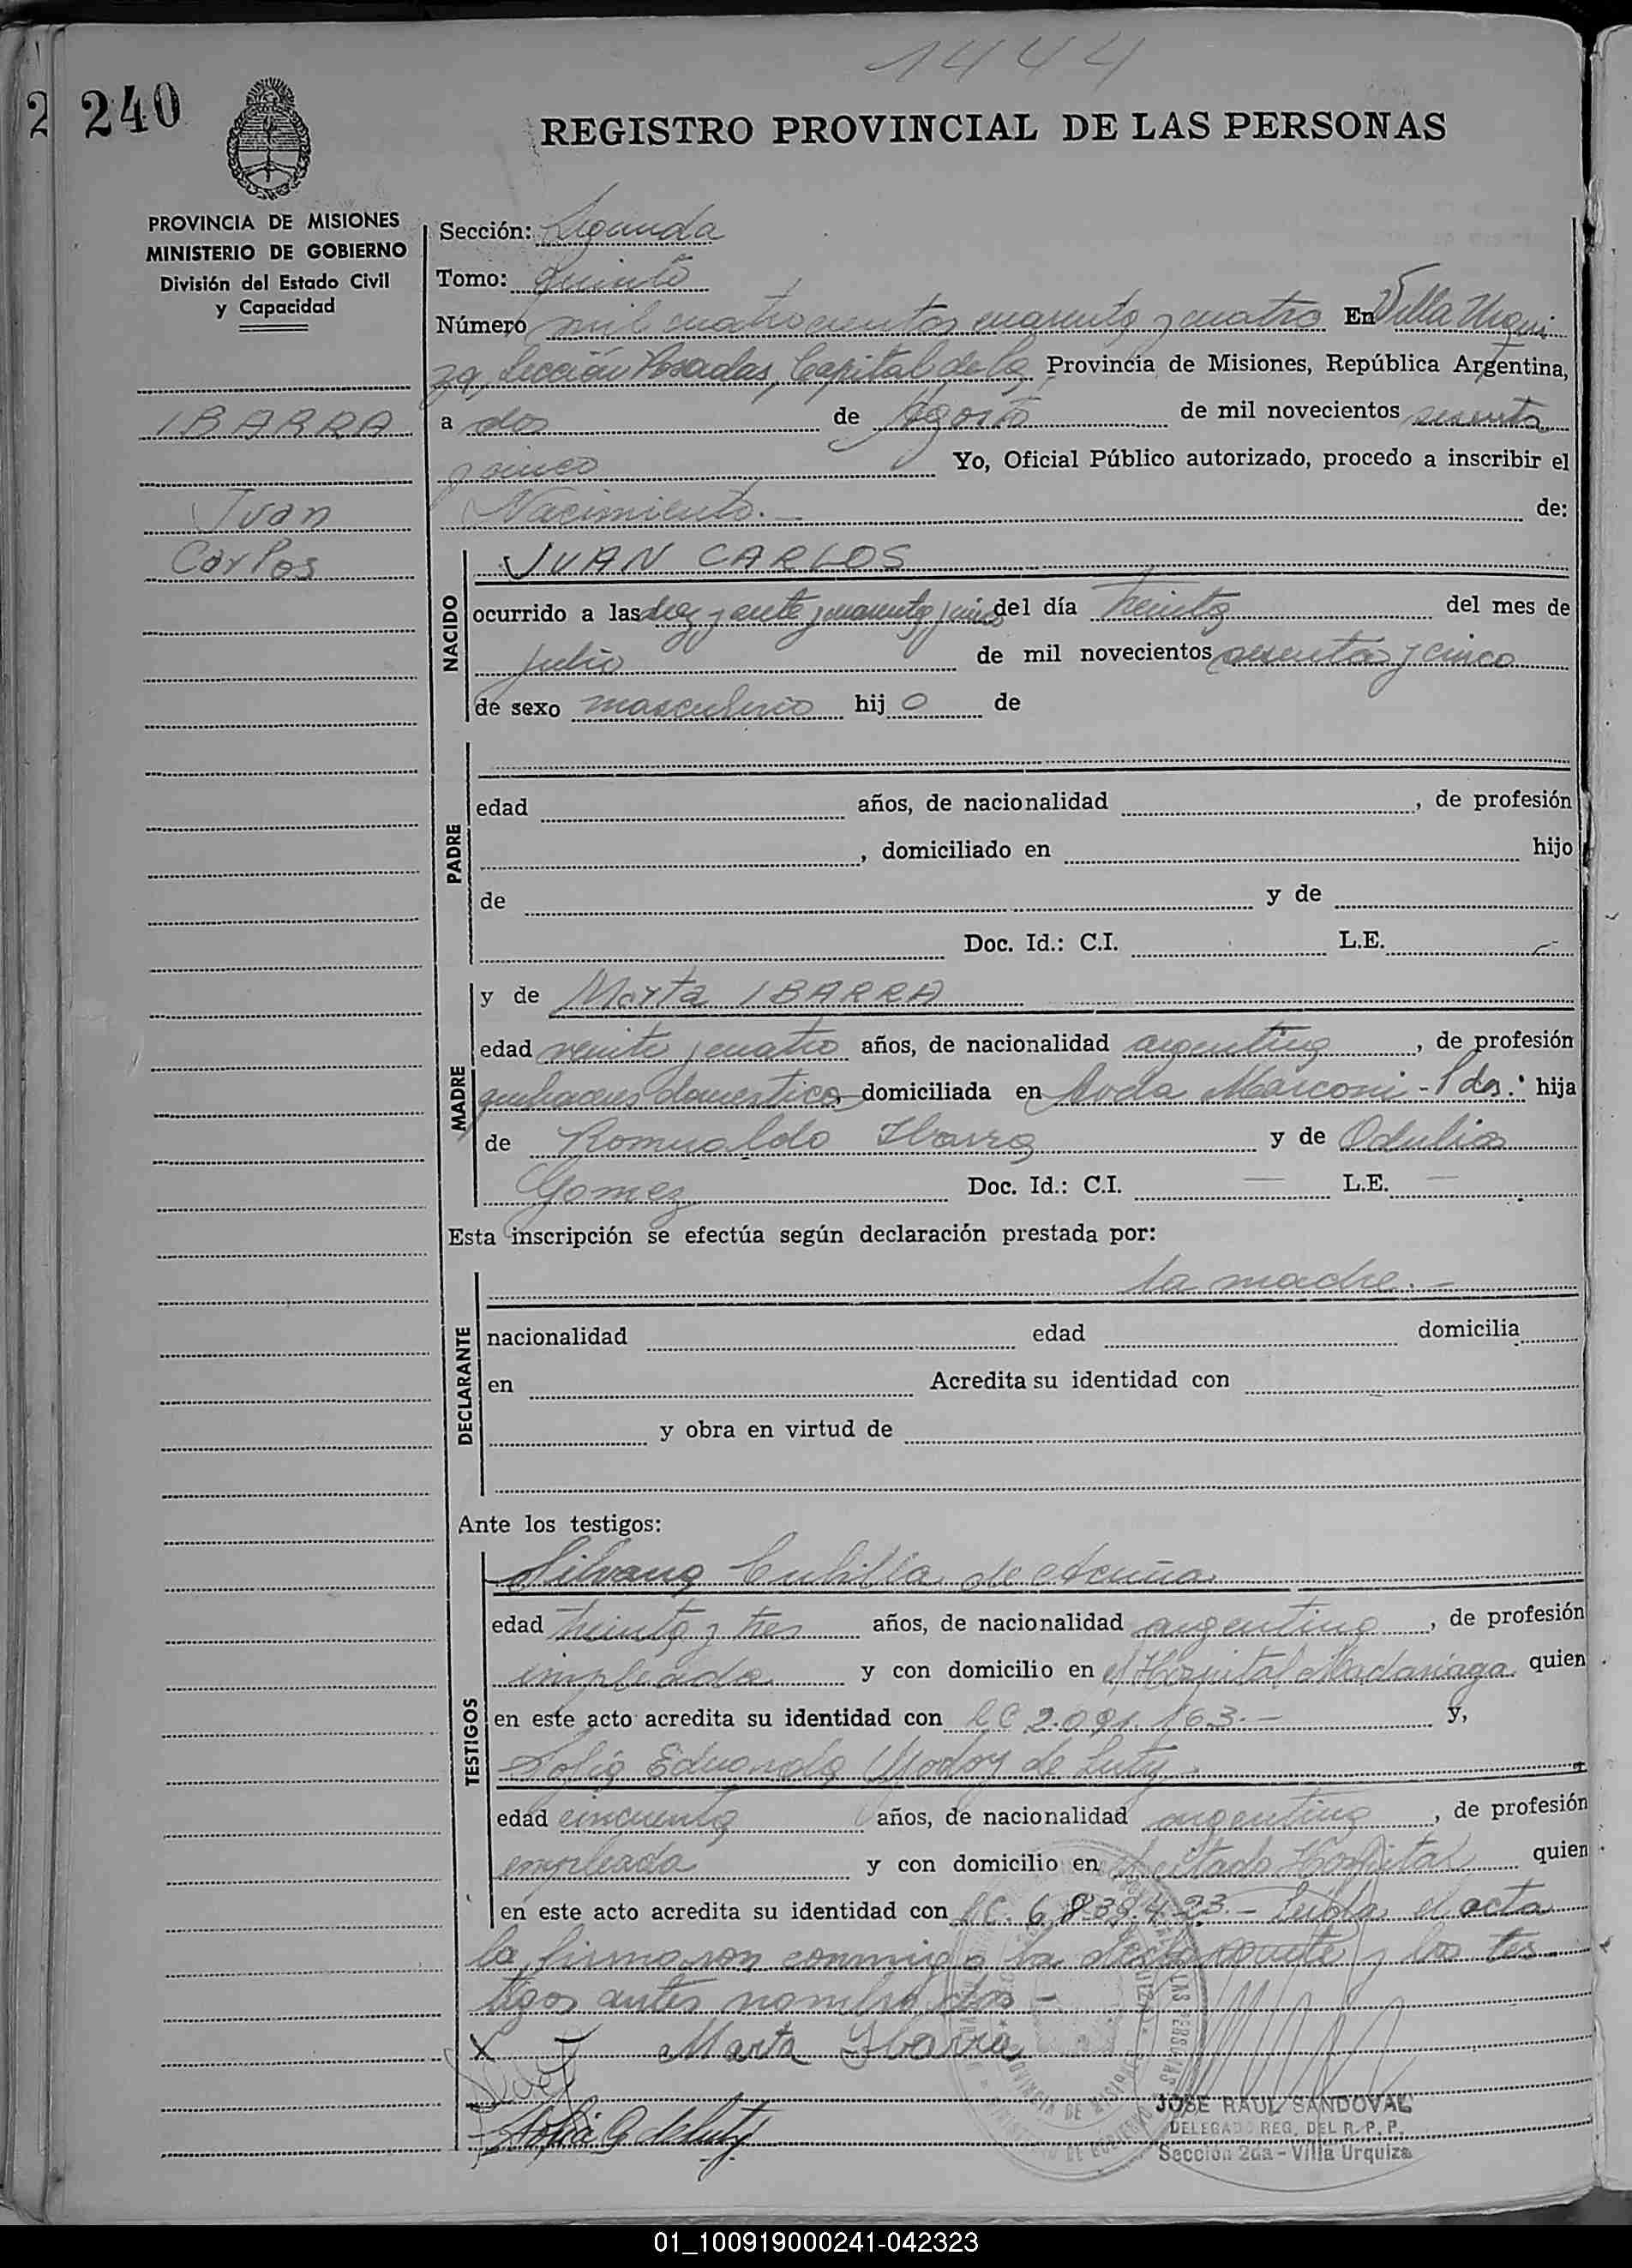 1444
2 240
REGISTRO PROVINCIAL DE LAS PERSONAS
PROVINCIA DE MISIONES
MINISTERIO DE GOBIERNO
División del Estado Civil
y Capacidad
IBARRA
Juan
Carlos
Sección: Segunda
Tomo: Quinto
Número mil cuatrocientos cuarenta y cuatro En Villa Urqui
za, Sección Posadas, Capital de la Provincia de Misiones, República Argentina,
a dos de Agosto de mil novecientos sesenta
y cinco Yo, Oficial Público autorizado, procedo a inscribir el
Nacimiento.- de:
NACIDO
JUAN CARLOS
ocurrido a las diez y siete y cuarenta y cinco del día treinta del mes de
julio de mil novecientos sesenta y cinco
de sexo masculino hijo de
PADRE
edad años, de nacionalidad , de profesión
, domiciliado en hijo
de y de
Doc. Id.: C.I. L.E.
MADRE
y de Marta IBARRA
edad veinte y cuatro años, de nacionalidad argentina , de profesión
quehaceres domesticos domiciliada en Avda Marconi - Pdas. hija
de Romualdo Ibarra y de Odulia
Gomez Doc. Id.: C.I. — L.E. —
Esta inscripción se efectúa según declaración prestada por:
DECLARANTE
la madre.-
nacionalidad edad domicilia
en Acredita su identidad con
y obra en virtud de
Ante los testigos:
TESTIGOS
Silvana Cubilla de Acuña
edad treinta y tres años, de nacionalidad argentina , de profesión
empleada y con domicilio en el Hospital Madariaga quien
en este acto acredita su identidad con LC 2.091.163.- y,
Sofia Eduarda Godoy de Luty.
edad cincuenta años, de nacionalidad argentina , de profesión
empleada y con domicilio en citado Hospital quien
en este acto acredita su identidad con LC. 6.838.423.- Leida el acta
la firmaron conmigo la declarante y los tes-
tigos antes nombrados -
X Marta Ybarra
Sofia G de Luty
JOSE RAUL SANDOVAL
DELEGADO REG. DEL R. P. P.
Sección 2da - Villa Urquiza
01_100919000241-042323